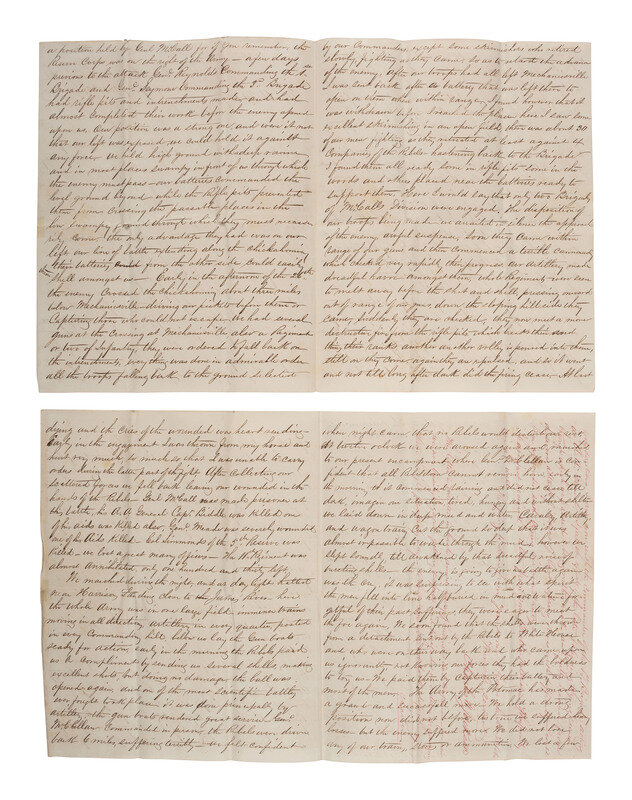 a position held by Genl McCall for if you remember, the
Reserve Corps was on the right of the Army — a few days
previous to the attack Genl Reynolds Commanding the 1st
Brigade and Genl Seymour Commanding the 3d Brigade
had rifle pits and intrenchments made and had
almost completed their work before the enemy opened
upon us. Our position was a strong one, and were it not
that our left was exposed we could hold it against
any force — we held high ground with deep ravine
and in most places swampy in front of us through which
the enemy must pass — our batteries commanded the
level ground beyond while the Rifle pits prevented
them from crossing the passable places in the
low swampy ground through which they must necessa
rily come. the only advantage they had was on our
left our line of battle extending along the Chickahominy
their batteries from the other side could easily
shell amongst us — Early in the afternoon of the 26th
the enemy crossed the Chickahominy about three miles
below Mechanicsville driving our pickets before them or
Capturing them who could not escape. we had several
Guns at the Crossing at Mechanicsville also a Regiment
or two of Infantry, they were ordered to fall back on
the intrenchments, every thing was done in admirable order
all the troops falling back to the ground selected
by our Commanders, except some skirmishers who retired
slowly, fighting as they came so as to retard the advance
of the enemy, after our troops had all left Mechanicsville
I was sent back after a battery that was left there to
open on them when within range, I found however that it
was withdrawn before I reached the place. here I saw some
excellent skirmishing in an open field, there was about 30
of our men fighting as they retreated at least against six
Companies of the Rebels, hastening back to the Brigade
I found them all ready, some in rifle pits some in the
woods and others posted near the batteries ready to
support them. Here I would say that only two Brigades
of McCalls Division were engaged, The disposition of
our troops being made we awaited in silence the approach
of the enemy, awful suspense, Soon they came within
range of our guns and then commenced a terrible cannonade
which checked very rapidly their progress our artillery made
dreadful havoc amongst them, whole Regiments were seen
to melt away before the shot and shell, seeking
out of range of our guns, down the sloping hill side they
came, Suddenly they are checked, they now meet a more
destructive fire from the rifle pits which
thin their ranks another an other volley is poured into them,
still on they come again they are repulsed, and so it went
and not till long after dark did the firing cease — At last
dying and the cries of the wounded was heart rending —
Early in the engagement I was thrown from my horse and
hurt very much, so much so that I was unable to carry
orders during the latter part of the fight, After collecting our
scattered forces we fell back leaving our wounded in the
hands of the Rebels — Genl McCall was made prisoner at
this battle, his A.A. General Capt Biddle was killed one
of his aids was killed also, Genl Meade was severely wounded
one of his Aids killed — Col Simmonds of the 5th Reserve was
killed — we lost a great many officers — The 11th Regiment was
almost annihilated, only one hundred and thirty left,
We marched during the night, and as day light halted
near Harrison Landing close to the James River here
the whole Army was in one large field, immense trains
moving in all directions artillery in every quarter posted
on every Commanding hill below us lay the Gun boats
ready for action, early in the morning the Rebels paid
us a Compliment by sending us several shells, making
excellent shots but doing no damage, the ball was
opened again and on of the most scientific battles
ever fought took place, it was done principally by
artillery — the gun boats rendered great service. Genl
McClellan Commanded in person, the Rebels were driven
back 6 miles suffering terribly — we felt confident
when night came, that no Rebels would disturb our rest
At twelve oclock we were aroused again and marched
to our present encampment, when Genl McClellan is con
fident that all Rebeldom cannot move him, early in
the morning it commenced raining and did not cease till
dark, imagine our situation, tired, hungry and without shelter
we laid down in deep mud and water, Cavalry, Artillery
and wagon trains cut the ground so deep that it was
almost impossible to wade through the mud, however we
slept soundly, till awakened by that dreadful noise of
bursting shells — the enemy is going to give us battle again
was the cry, it was surprising to see with what spirit
the men fell into line half buried in mud and water for
getful of their past sufferings they were eager to meet
the foe again. We soon found that the shells were thrown
from a detachment sent out by the Rebels to White House
and who were on their way back and who came upon
us ignorantly not knowing our force they had the boldness
to try us — We paid them by Capturing their battery and
most of the men — The Army of the Potomac has made
a grand and successful move — We hold a strong
position now, and not before, tis true we suffered heavy
losses but the enemy suffered more. We did not lose
any of our trains, stores or ammunition. We lost a few